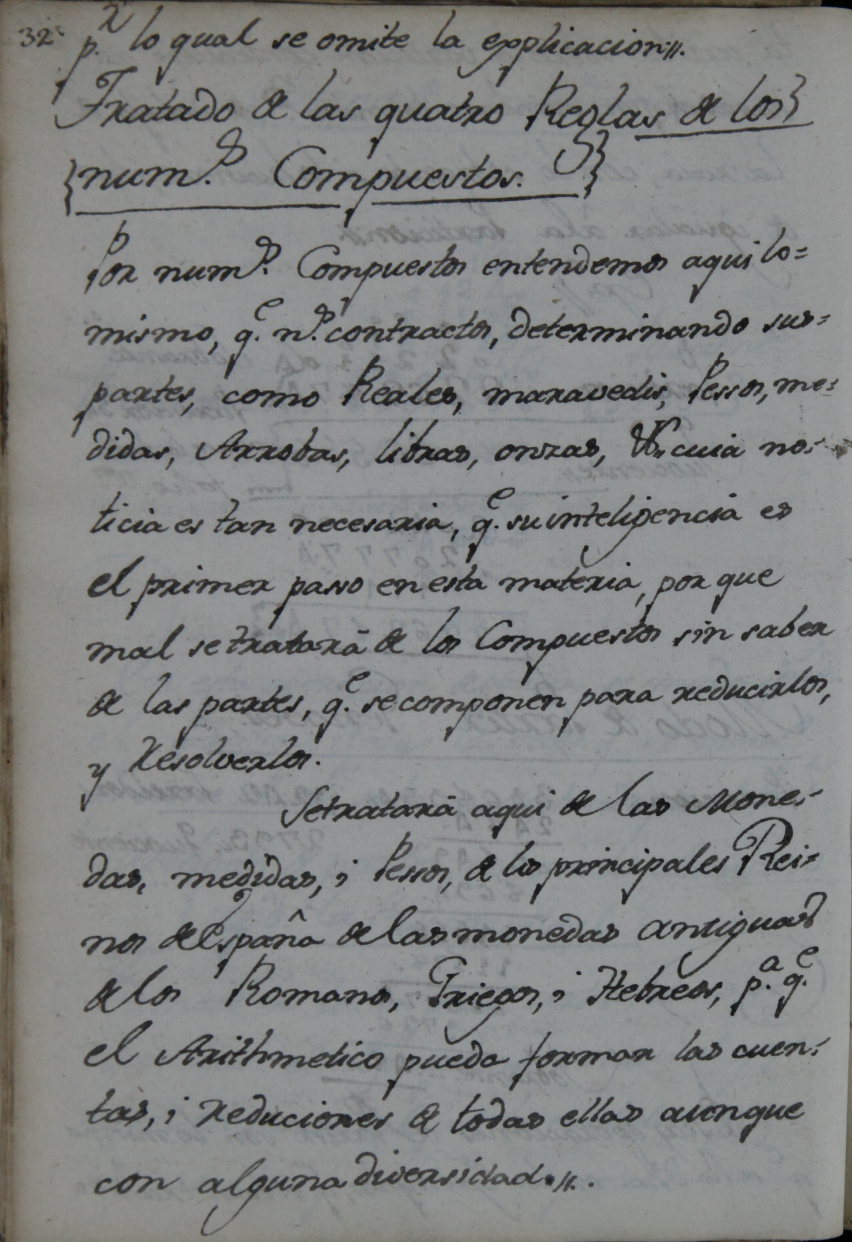 32
p.r lo qual se omite la explicacion //.
Tratado de las quatro Reglas de los}
{num.s Compuestos.}
Por num.s Compuestos entendemos aqui lo=
mismo, q.e n.s contractos, determinando sus=
partes, como Reales, maravedis, Pessos, me=
didas, Arrobas, libras, onzas, &c. cuia no-
ticia es tan necesaria, q.e su inteligencia es
el primer passo en esta materia, por que
mal se tratarâ de los Compuestos sin saber
de las partes, q.e se componen para reducirlos,
y Resolverlos.
Se tratarâ aqui de las Mone-
das, medidas, i Pessos, de los principales Rei-
nos de España de las monedas antiguas
de los Romanos, Griegos, i Hebreos, p.a q.e
el Arithmetico pueda formar las cuen-
tas, i reduciones de todas ellas aunque
con alguna diversidad. //.